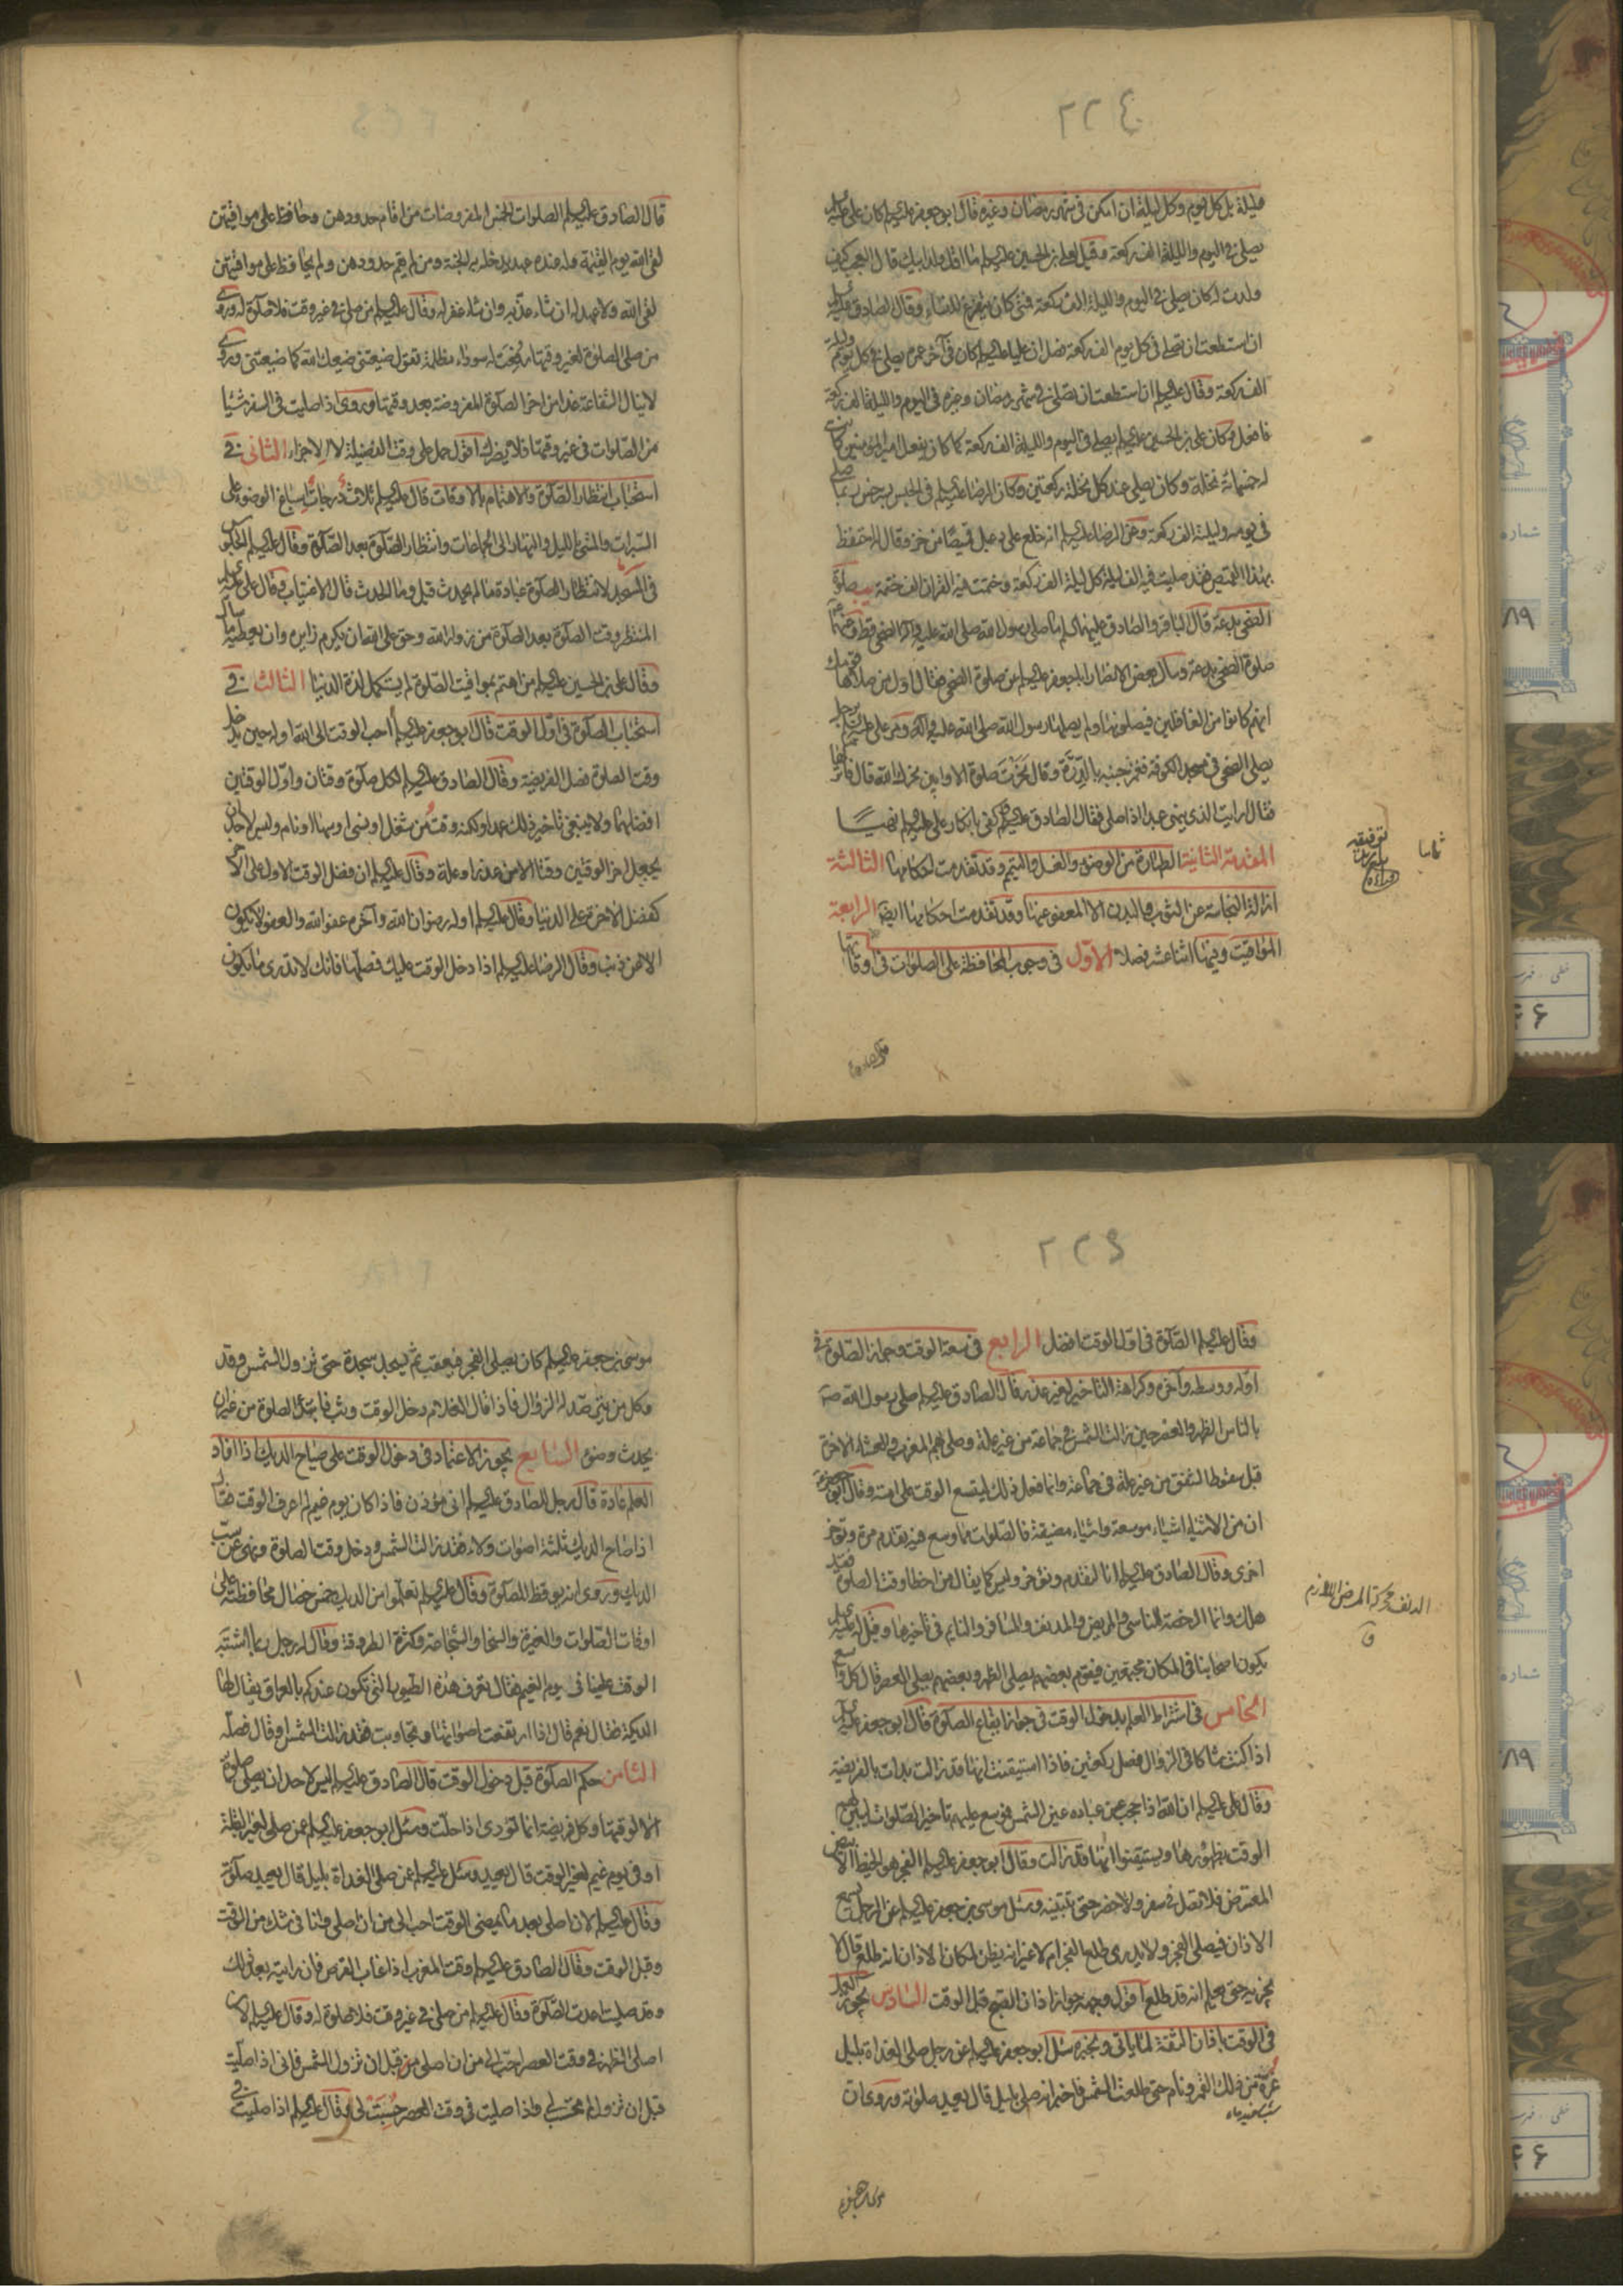 ٢٢٤
وليلة بل كل يوم وكل ليلة ان امكن في شهر رمضان وغيره قال ابو جعفر عليه السلم كان علي عليه السلم
يصلي في اليوم والليلة الف ركعة وقيل لعلي بن الحسين عليه السلم ما اقل ولد ابيك قال العجب كيف
ولدت له كان يصلي في اليوم والليلة الف ركعة فمتى كان يتفرغ للنساء وقال الصادق عليه السلم
ان استطعت ان تصلي في كل يوم الف ركعة فصل ان عليا عليه السلم كان في آخر عمره يصلي في كل يوم وليلة
الف ركعة وقال عليه السلم ان استطعت ان تصلي في شهر رمضان وغيره في اليوم والليلة الف ركعة
فافعل وكان علي بن الحسين عليه السلم يصلي في اليوم والليلة الف ركعة كما كان يفعل امير المؤمنين كانت
له خمسمائة نخلة وكان يصلي عند كل نخلة ركعتين وكان الرضا عليه السلم في الحبس بسرخس ربما صلى
في يومه وليلته الف ركعة وعن الرضا عليه السلم انه خلع على دعبل قميصا من خز وقال له احتفظ
بهذا القميص فقد صليت فيه الف ليلة كل ليلة الف ركعة وختمت فيه القران الف ختمة يب صلوة
الضحى بدعة قال الباقر والصادق عليهما السلم ما صلى رسول الله صلى الله عليه وآله الضحى قط وعنهما
صلوة الضحى بدعة وسال بعض الانصار ابا جعفر عليه السلم عن صلوة الضحى فقال اول من صلاها قومك
انهم كانوا من الغافلين فيصلونها ولم يصلها رسول الله صلى الله عليه وآله ومر علي عليه السلم برجل
يصلي الضحى في مسجد الكوفة فغمز جنبه بالدرة وقال نحرت صلوة الاوابين نحرك الله قال فاتركها
فقال ارايت الذي ينهى عبدا اذا صلى فقال الصادق عليه السلم كفى بانكار علي عليه السلم نهيا
المقدمة الثانية الطهارة من الوضوء والغسل والتيمم وقد تقدمت احكامها الثالثة
ازالة النجاسة عن الثوب والبدن الا المعفو عنها وقد تقدمت احكامها ايضا الرابعة
المواقيت وفيها اثنا عشر فصلا الاول في وجوب المحافظة على الصلوات في اوقاتها
قال الصادق
قال الصادق عليه السلم الصلوات الخمس المفروضات من اقام حدودهن وحافظ على مواقيتهن
لقى الله يوم القيمة وله عنده عهد يدخله به الجنة ومن لم يقم حدودهن ولم يحافظ على مواقيتهن
لقى الله ولا عهد له ان شاء عذبه وان شاء غفر له وقال عليه السلم من صلى في غير وقت فلا صلوة له وروى
من صلى الصلوة لغير وقتها رفعت له سوداء مظلمة تقول ضيعتني ضيعك الله كما ضيعتني وروى
لا ينال الشفاعة غدا من اخر الصلوة المفروضة بعد وقتها وروى اذا صليت في السفر شيئا
من الصلوات في غير وقتها فلا يضرك اقول حمل على وقت الفضيلة لا الاجزاء الثاني في
استحباب انتظار الصلوة والاهتمام بالاوقات قال عليه السلم ثلاث درجات اسباغ الوضوء على
السبرات والمشي بالليل والنهار الى الجماعات وانتظار الصلوة بعد الصلوة وقال عليه السلم الجلوس
في المسجد لانتظار الصلوة عبادة ما لم يحدث قيل وما الحدث قال الاغتياب وقال علي عليه السلم
المنتظر وقت الصلوة بعد الصلوة من زوار الله وحق على الله ان يكرم زايره وان يعطيه ما سأل
وقال علي بن الحسين عليه السلم من اهتم بمواقيت الصلوة لم يستكمل لذة الدنيا الثالث في
استحباب الصلوة في اول الوقت قال ابو جعفر عليه السلم احب الوقت الى الله اوله حين يدخل
وقت الصلوة فصل الفريضة وقال الصادق عليه السلم لكل صلوة وقتان واول الوقتين
افضلهما ولا ينبغي تاخير ذلك عمدا ولكنه وقت من شغل او نسي او سها او نام وليس لاحد ان
يجعل اخر الوقتين وقتا الا من عذر او علة وقال عليه السلم ان فضل الوقت الاول على الاخر
كفضل الاخرة على الدنيا وقال عليه السلم اوله رضوان الله وآخره عفو الله والعفو لا يكون
الا من ذنب وقال الرضا عليه السلم اذا دخل الوقت عليك فصلها فانك لا تدري ما يكون
٢٢٥
وقال عليه السلم الصلوة في اول الوقت افضل الرابع في سعة الوقت وجواز الصلوة في
اوله ووسطه وآخره وكراهة التاخير لغير عذر قال الصادق عليه السلم صلى رسول الله ص
بالناس الظهر والعصر حين زالت الشمس في جماعة من غير علة وصلى بهم المغرب والعشاء الاخرة
قبل سقوط الشفق من غير علة في جماعة وانما فعل ذلك ليتسع الوقت على امته وقال ابو جعفر
ان من الاشياء اشياء موسعة واشياء مضيقة فالصلوات مما وسع فيه تقدم مرة وتؤخر
اخرى وقال الصادق عليه السلم انا لنقدم ونؤخر وليس كما يقال من اخطا وقت الصلوة فقد
هلك وانما الرخصة للناسي والمريض والمدنف والمسافر والنايم في تاخيرها وقيل له عليه السلم
يكون اصحابنا في المكان مجتمعين فيقوم بعضهم يصلي الظهر وبعضهم يصلي العصر قال كل واسع
الخامس في اشتراط العلم بدخول الوقت في جواز ايقاع الصلوة قال ابو جعفر عليه السلم
اذا كنت شاكا في الزوال فصل ركعتين فاذا استيقنت انها قد زالت بدات بالفريضة
وقال علي عليه السلم ان الله اذا حجب عن عباده عين الشمس وسع عليهم تاخير الصلوات ليتبين لهم
الوقت بظهورها ويستيقنوا انها قد زالت وقال ابو جعفر عليه السلم الفجر هو الخيط الابيض
المعترض فلا تصل في سفر ولا حضر حتى تتبينه وسئل موسى بن جعفر عليه السلم عن الرجل يسمع
الاذان فيصلي الفجر ولا يدري طلع الفجر ام لا غير انه يظن لمكان الاذان انه طلع قال لا
يجزيه حتى يعلم انه قد طلع اقول وجهه جواز اذان الصبح قبل الوقت السادس يجوز العمل
في الوقت باذان الثقة لما ياتي وبخبره سئل ابو جعفر عليه السلم عن رجل صلى الغداة بليل
غره من ذلك القمر ونام حتى طلعت الشمس فاخبر انه صلى بليل قال يعيد صلوته وروى ان
موسى بن جعفر
موسى بن جعفر عليه السلم كان يصلي الفجر فيعقب ثم يسجد سجدة حتى تزول الشمس وقد
وكل من يترصد له الزوال فاذا قال الغلام دخل الوقت وثب فابتدا الصلوة من غير ان
يحدث وضوء السابع يجوز الاعتماد في دخول الوقت على صياح الديك اذا افاد
العلم عادة قال رجل للصادق عليه السلم اني مؤذن فاذا كان يوم غيم لم اعرف الوقت فقال
اذا صاح الديك ثلثة اصوات ولاء فقد زالت الشمس ودخل وقت الصلوة ونهى عن سب
الديك وروى انه يوقظ للصلوة وقال عليه السلم تعلموا من الديك خمس خصال محافظته على
اوقات الصلوات والغيرة والسخا والشجاعة وكثرة الطروقة وقال له رجل ربما اشتبه
الوقت علينا في يوم الغيم فقال تعرف هذه الطيور التي تكون عندكم بالعراق يقال لها
الديكة فقال نعم قال اذا ارتفعت اصواتها وتجاوبت فقد زالت الشمس او قال فصله
الثامن حكم الصلوة قبل دخول الوقت قال الصادق عليه السلم ليس لاحد ان يصلي صلوة
الا لوقتها وكل فريضة انما تؤدى اذا حلت وسئل ابو جعفر عليه السلم عمن صلى لغير القبلة
او في يوم غيم لغير الوقت قال يعيد وسئل عليه السلم عمن صلى الغداة بليل قال يعيد صلوته
وقال عليه السلم لان اصلي بعد ما يمضي الوقت احب الي من ان اصلي وانا في شك من الوقت
وقبل الوقت وقال الصادق عليه السلم وقت المغرب اذا غاب القرص فان رايته بعد ذلك
وقد صليت اعدت الصلوة وقال عليه السلم من صلى في غير وقت فلا صلوة له وقال عليه السلم لان
اصلي الظهر في وقت العصر احب الي من ان اصلي من قبل ان تزول الشمس فاني اذا صليت
قبل ان تزول لم تحتسب لي واذا صليت في وقت العصر حسبت لي وقال عليه السلم اذا صليت في
الدنف محركة المرض اللازم
ق
شماره
خطی ، فهرست